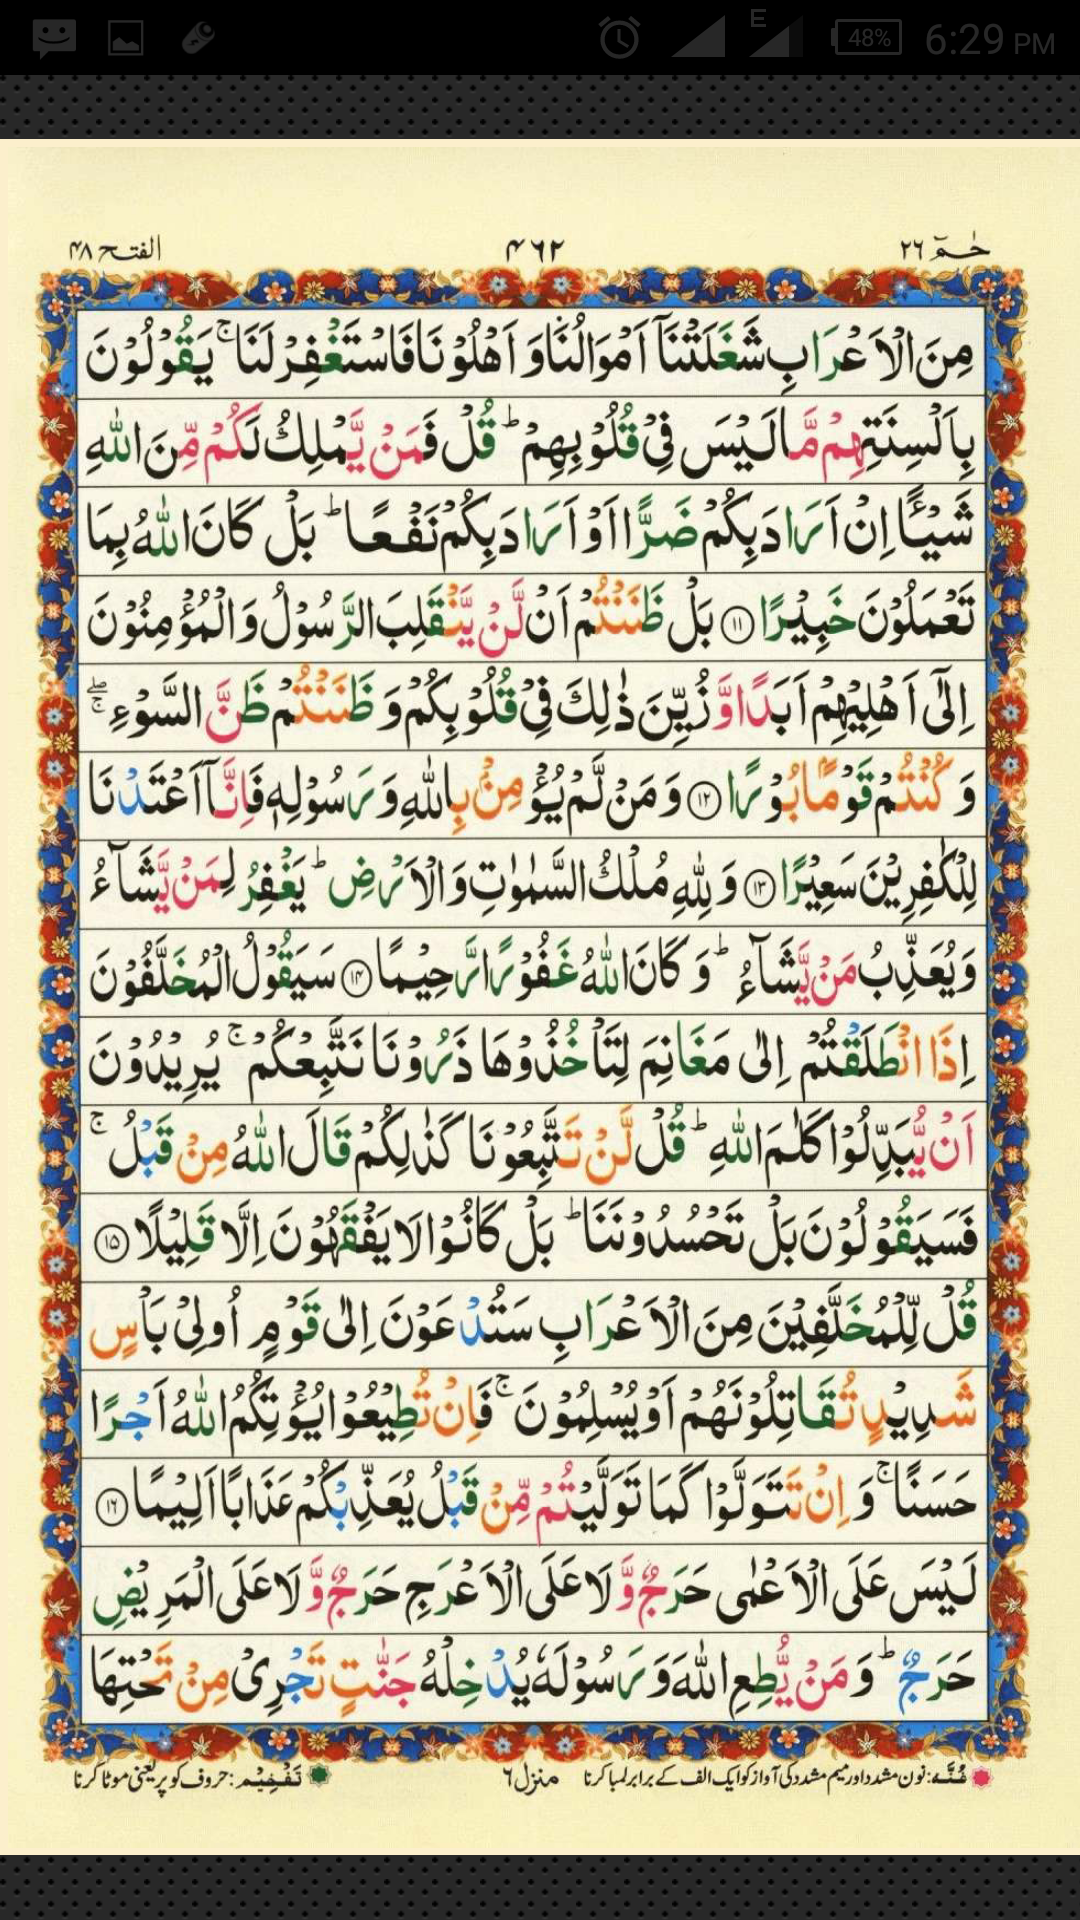 48%
6:29 PM
حٰمٓ ٢٦
٤٦٢
الفتح ٤٨
مِنَ الْاَعْرَابِ شَغَلَتْنَاۤ اَمْوَالُنَا وَ اَهْلُوْنَا فَاسْتَغْفِرْ لَنَا ۚ يَقُوْلُوْنَ
بِاَلْسِنَتِهِمْ مَّا لَيْسَ فِيْ قُلُوْبِهِمْ ؕ قُلْ فَمَنْ يَّمْلِكُ لَكُمْ مِّنَ اللّٰهِ
شَيْـًٔا اِنْ اَرَادَ بِكُمْ ضَرًّا اَوْ اَرَادَ بِكُمْ نَفْعًا ؕ بَلْ كَانَ اللّٰهُ بِمَا
تَعْمَلُوْنَ خَبِيْرًا ۝۱۱ بَلْ ظَنَنْتُمْ اَنْ لَّنْ يَّنْقَلِبَ الرَّسُوْلُ وَ الْمُؤْمِنُوْنَ
اِلٰۤى اَهْلِيْهِمْ اَبَدًا وَّ زُيِّنَ ذٰلِكَ فِيْ قُلُوْبِكُمْ وَ ظَنَنْتُمْ ظَنَّ السَّوْءِ ۖۚ
وَ كُنْتُمْ قَوْمًۢا بُوْرًا ۝۱۲ وَ مَنْ لَّمْ يُؤْمِنْۢ بِاللّٰهِ وَ رَسُوْلِهٖ فَاِنَّاۤ اَعْتَدْنَا
لِلْكٰفِرِيْنَ سَعِيْرًا ۝۱۳ وَ لِلّٰهِ مُلْكُ السَّمٰوٰتِ وَ الْاَرْضِ ؕ يَغْفِرُ لِمَنْ يَّشَآءُ
وَ يُعَذِّبُ مَنْ يَّشَآءُ ؕ وَ كَانَ اللّٰهُ غَفُوْرًا رَّحِيْمًا ۝۱۴ سَيَقُوْلُ الْمُخَلَّفُوْنَ
اِذَا انْطَلَقْتُمْ اِلٰى مَغَانِمَ لِتَاْخُذُوْهَا ذَرُوْنَا نَتَّبِعْكُمْ ۚ يُرِيْدُوْنَ
اَنْ يُّبَدِّلُوْا كَلٰمَ اللّٰهِ ؕ قُلْ لَّنْ تَتَّبِعُوْنَا كَذٰلِكُمْ قَالَ اللّٰهُ مِنْ قَبْلُ ۚ
فَسَيَقُوْلُوْنَ بَلْ تَحْسُدُوْنَنَا ؕ بَلْ كَانُوْا لَا يَفْقَهُوْنَ اِلَّا قَلِيْلًا ۝۱۵
قُلْ لِّلْمُخَلَّفِيْنَ مِنَ الْاَعْرَابِ سَتُدْعَوْنَ اِلٰى قَوْمٍ اُولِيْ بَاْسٍ
شَدِيْدٍ تُقَاتِلُوْنَهُمْ اَوْ يُسْلِمُوْنَ ۚ فَاِنْ تُطِيْعُوْا يُؤْتِكُمُ اللّٰهُ اَجْرًا
حَسَنًا ۚ وَ اِنْ تَتَوَلَّوْا كَمَا تَوَلَّيْتُمْ مِّنْ قَبْلُ يُعَذِّبْكُمْ عَذَابًا اَلِيْمًا ۝۱۶
لَيْسَ عَلَى الْاَعْمٰى حَرَجٌ وَّ لَا عَلَى الْاَعْرَجِ حَرَجٌ وَّ لَا عَلَى الْمَرِيْضِ
حَرَجٌ ؕ وَ مَنْ يُّطِعِ اللّٰهَ وَ رَسُوْلَهٗ يُدْخِلْهُ جَنّٰتٍ تَجْرِيْ مِنْ تَحْتِهَا
غُنَّہ: نون مشدد اور میم مشدد کی آواز کو ایک الف کے برابر لمبا کرنا
منزل ٦
تَفْخِیْم: حروف کو پر یعنی موٹا کرنا